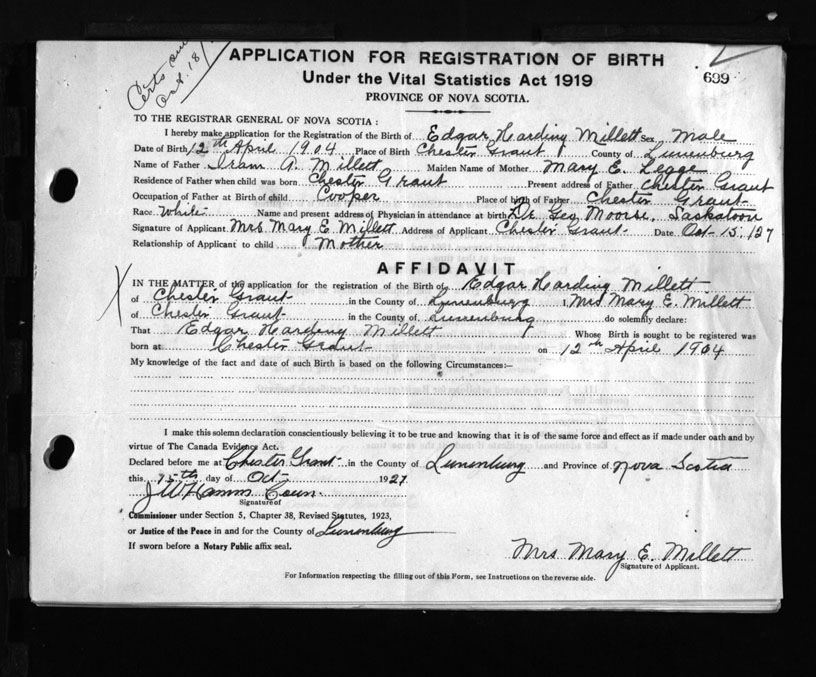 Certs
Oct. 18/
APPLICATION FOR REGISTRATION OF BIRTH
699
Under the Vital Statistics Act 1919
PROVINCE OF NOVA SCOTIA.
TO THE REGISTRAR GENERAL OF NOVA SCOTIA :
I hereby make application for the Registration of the Birth of Edgar Harding Millett Sex Male
Date of Birth 12th April 1904 Place of Birth Chester Grant County of Lunenburg
Name of Father A. Millett Maiden Name of Mother Mary E. Legge
Residence of Father when child was born Chester Grant Present address of Father Chester Grant
Occupation of Father at Birth of child Cooper Place of birth of Father Chester Grant
Race White Name and present address of Physician in attendance at birth Dr. Saskatoon
Signature of Applicant Mrs Mary E. Millett Address of Applicant Chester Grant Date Oct 15/27
Relationship of Applicant to child Mother
AFFIDAVIT
IN THE MATTER of the application for the registration of the Birth of Edgar Harding Millett
of Chester Grant in the County of Lunenburg I, Mrs Mary E. Millett
of Chester Grant in the County of Lunenburg do solemnly declare:
That Edgar Harding Millett Whose Birth is sought to be registered was
born at Chester Grant on 12th April 1904
My knowledge of the fact and date of such Birth is based on the following Circumstances:—
I make this solemn declaration conscientiously believing it to be true and knowing that it is of the same force and effect as if made under oath and by
virtue of The Canada Evidence Act.
Declared before me at Chester Grant in the County of Lunenburg and Province of Nova Scotia
this 15th day of Oct 1927
Signature of
Commissioner under Section 5, Chapter 38, Revised Statutes, 1923,
or Justice of the Peace in and for the County of Lunenburg
If sworn before a Notary Public affix seal.
Mrs Mary E. Millett
Signature of Applicant.
For Information respecting the filling out of this Form, see Instructions on the reverse side.